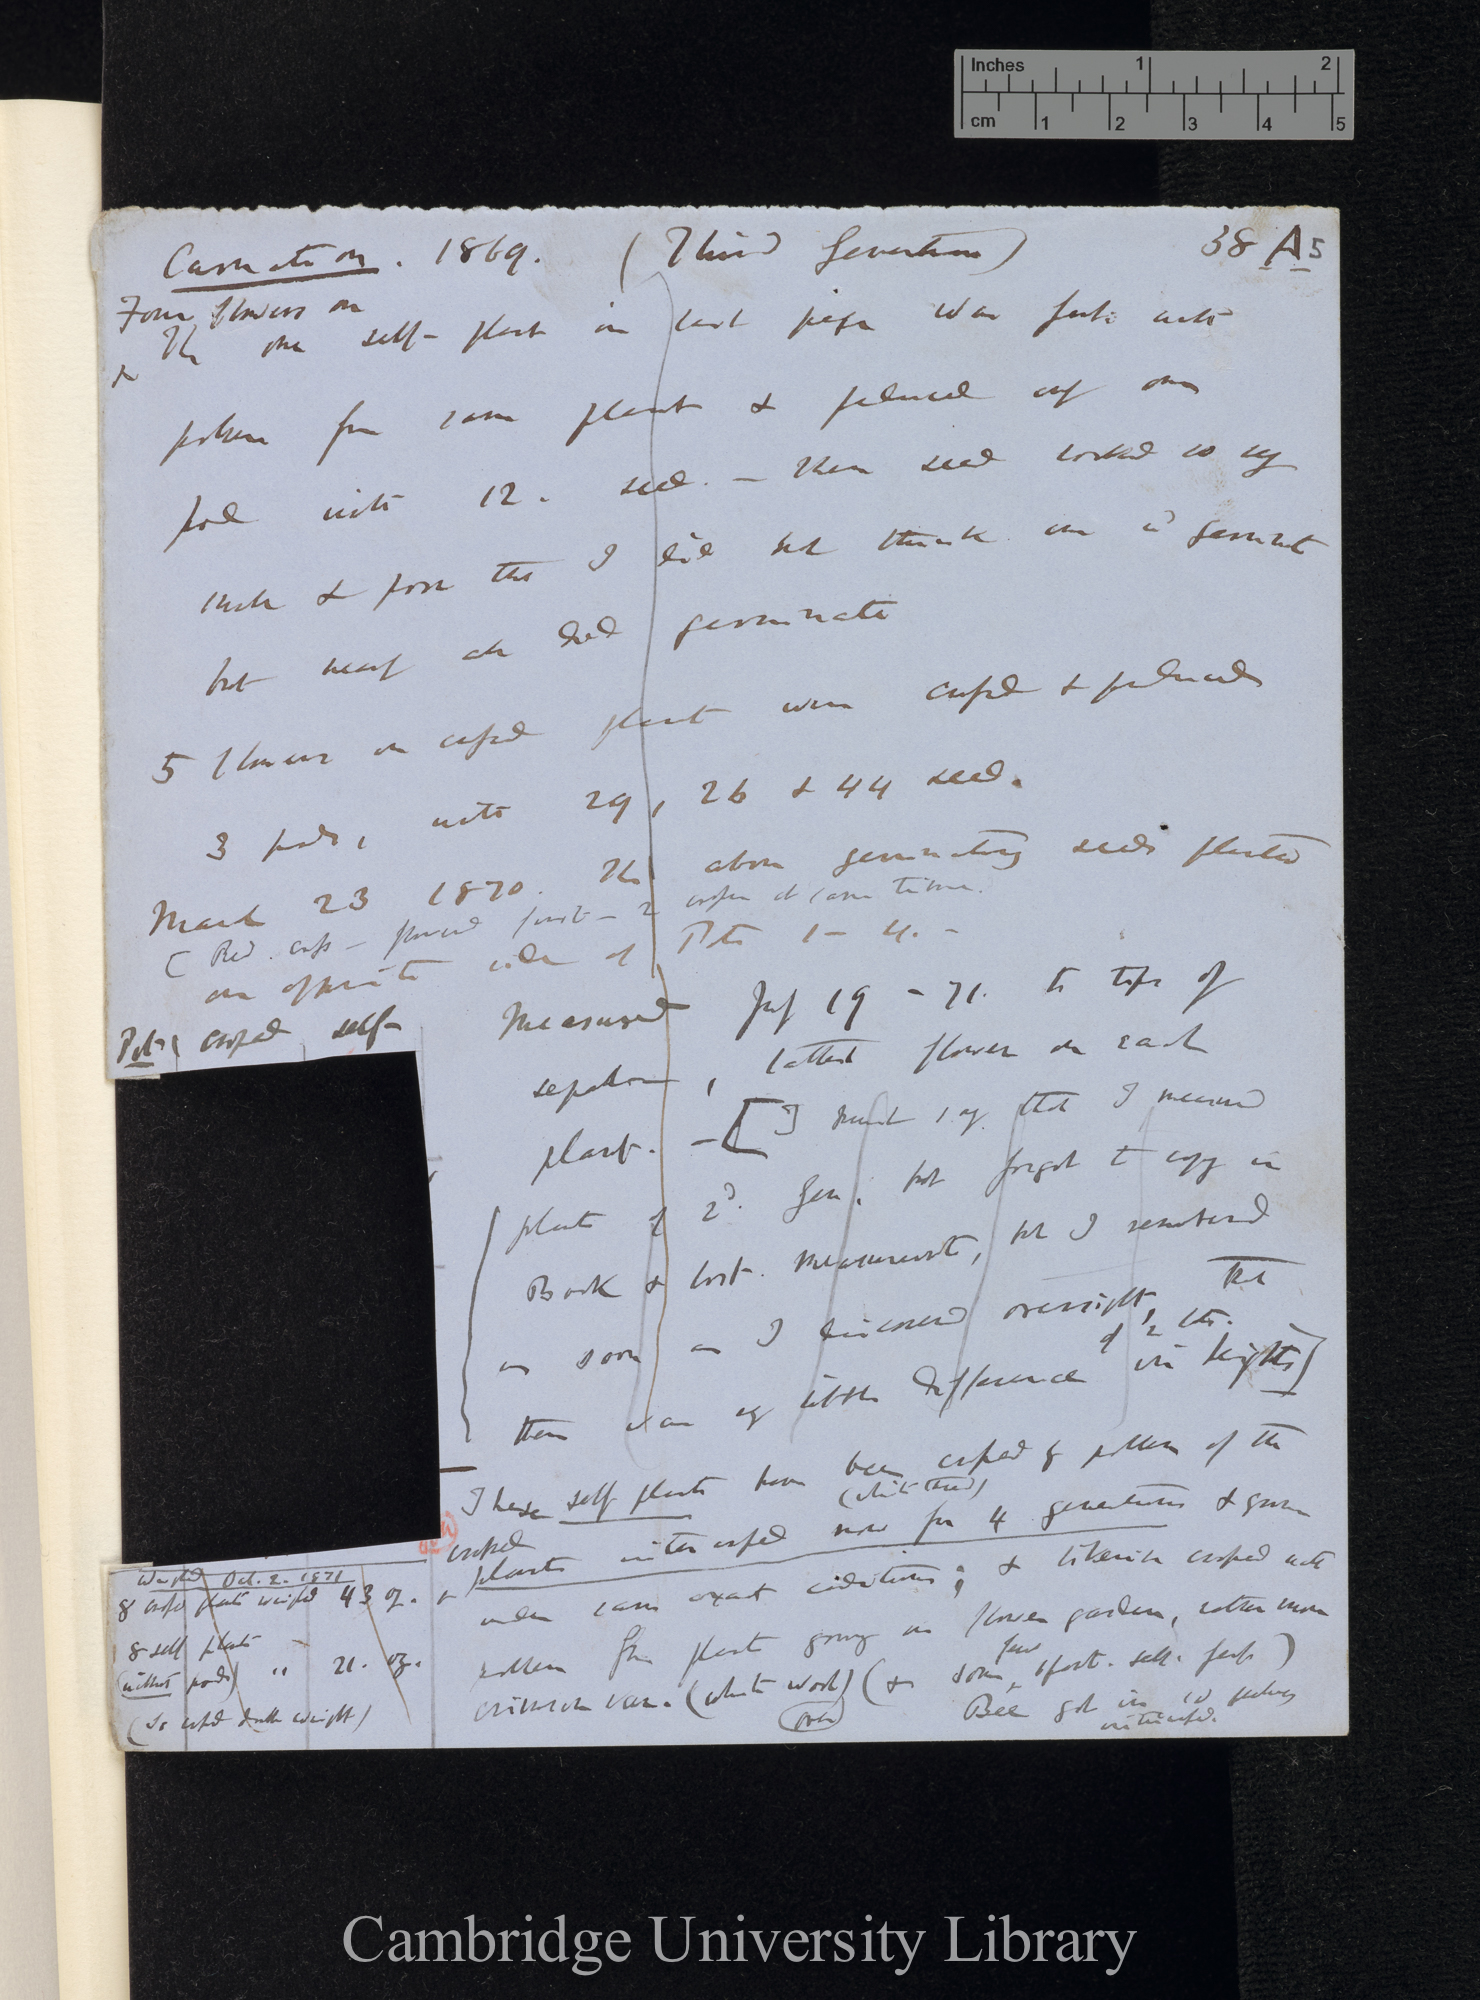 Inches 1 2
cm 1 2 3 4 5
Carnation. 1869. (Third Generation) 38 A5
Four flowers on
The one self-plant in last page was fert. with
pollen from same plant & produced only one
pod with 12. seed. — these seed looked so very
small & poor that I did not think one wd germinate
but nearly all did germinate
5 flowers on crossed plant were crossed & produced
3 pods, with 29, 26 & 44 seed.
March 23 1870. The above germinating seeds planted
( Red. cross — flowered first — 2 at same time.
on opposite sides of Pots 1-4. -
Pots crossed self- Measured July 19 - 71. to tips of
sepals, tallest flower on each
plant. — [I must say that I measured
plants of 2d. Gen. but forgot to copy in
Book & lost. measurements, but I remembered
as soon as I discovered oversight, that
of 2 lots.
there was very little difference in heights]
These self plants have been crossed by pollen of the
(white thread)
crossed
plants intercrossed now for 4 generations & grown
under same exact conditions; & likewise crossed with
pollen from plant growing in flower garden, rather more
few
crimson var. (white wool) (& some spont. self. fert.)
Bee got in so perhaps
intercrossed.
Weighed Oct. 2. 1871
8 crossed plants weighed 43 oz.
8 self plants
(without pods) " 21. oz.
(So crossed double weight)
Cambridge University Library